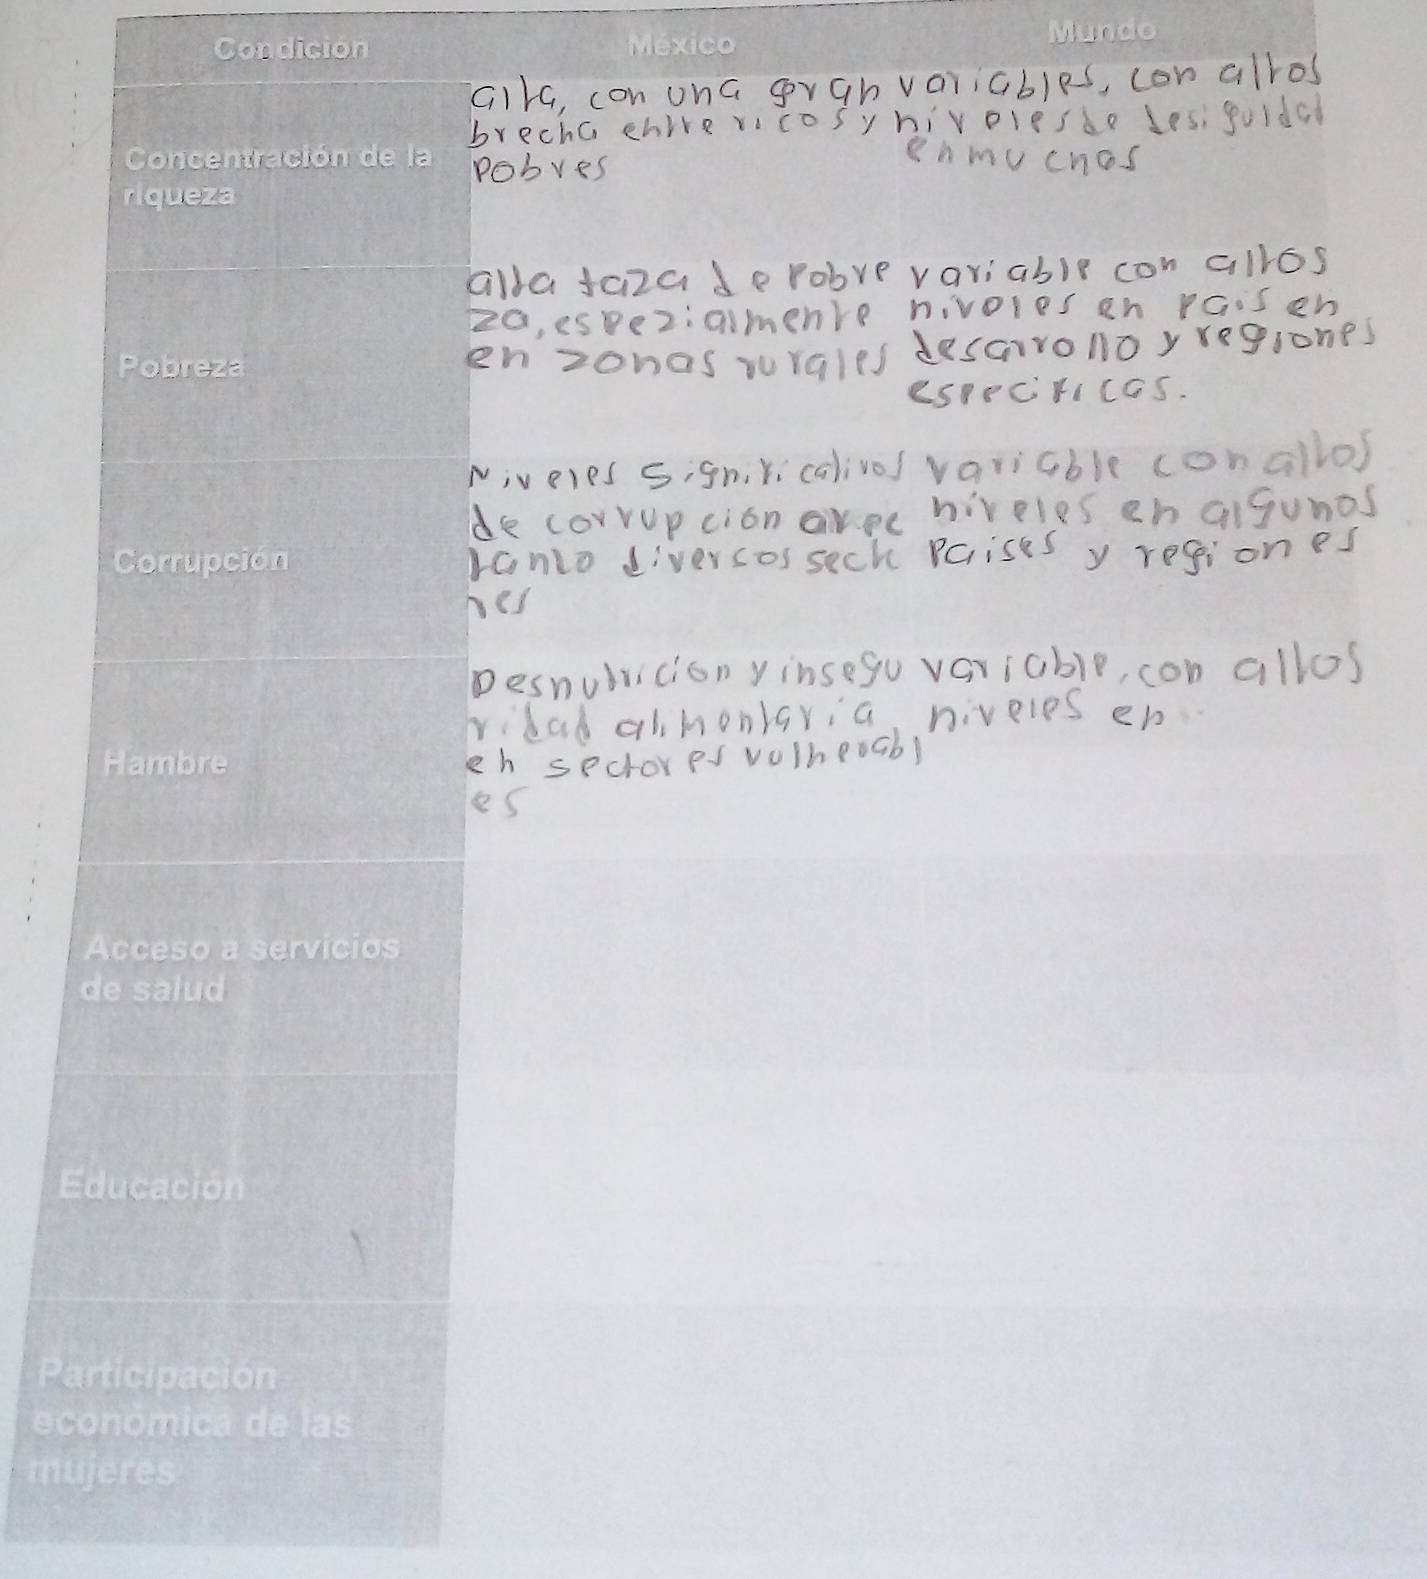 Condición México Mundo
Concentración de la
riqueza
alta, con una gran
brecha entre ricos y
pobres
variables, con altos
niveles de desiguldad
en muchas
Pobreza
alta taza de pobre
za, espezialmente
en zonas rurales
variable con altos
niveles en pais en
desarrollo y regiones
especificas.
Corrupción
Niveles significativos
de corrupcion afec
tanto diversos secto
res
variable con altos
niveles en algunos
paises y regiones
Hambre
Desnutricion y insegu
ridad alimentaria
en sectores vulnerabl
es
variable, con altos
niveles en
Acceso a servicios
de salud
Educación
Participación
económica de las
mujeres